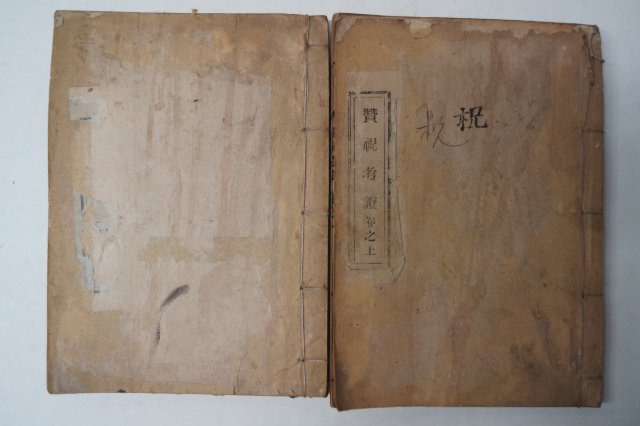 贊祝考證卷之上
祝
祝